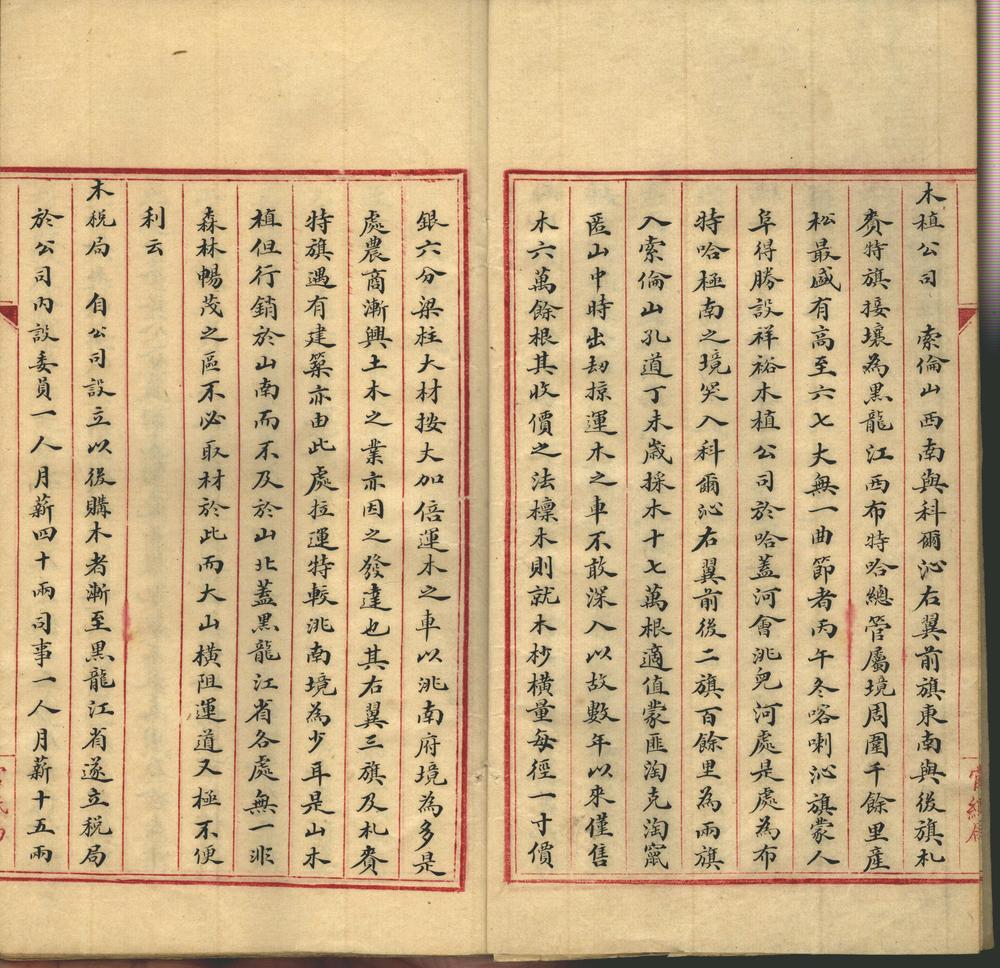 木植公司　索倫山西南與科爾沁右翼前旗東南與後旗札
賚特旗接壤為黑龍江西布特哈總管屬境周圍千餘里產
松最盛有高至六七大無一曲節者丙午冬喀喇沁旗蒙人
阜得勝設祥裕木植公司於哈蓋河會洮兒河處是處為布
特哈極南之境突入科爾沁右翼前後二旗百餘里為兩旗
入索倫山孔道丁未歲採木十七萬根適值蒙匪淘克淘竄
匿山中時出刧掠運木之車不敢深入以故數年以來僅售
木六萬餘根其收價之法檩木則就木杪橫量每徑一寸價
銀六分梁柱大材按大加倍運木之車以洮南府境為多是
處農商漸興土木之業亦因之發達也其右翼三旗及札賚
特旗遇有建築亦由此處拉運特較洮南境為少耳是山木
植但行銷於山南而不及於山北蓋黑龍江省各處無一非
森林暢茂之區不必取材於此而大山橫阻運道又極不便
利云
木稅局　自公司設立以後購木者漸至黑龍江省遂立稅局
於公司內設委員一人月薪四十兩司事一人月薪十五兩